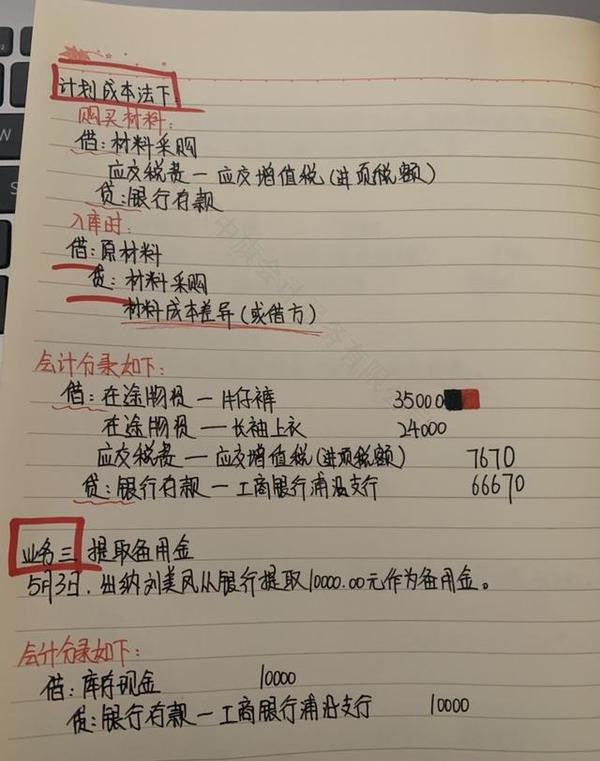 计划成本法下:
购买材料:
借:材料采购
应交税费—应交增值税(进项税额)
贷:银行存款
入库时:
借:原材料
贷:材料采购
材料成本差异(或借方)
会计分录如下:
借:在途物资—牛仔裤 35000
在途物资—长袖上衣 24000
应交税费—应交增值税(进项税额) 7670
贷:银行存款—工商银行浦沿支行 66670
业务三 提取备用金
5月3日,出纳刘美凤从银行提取10000.00元作为备用金。
会计分录如下:
借:库存现金 10000
贷:银行存款—工商银行浦沿支行 10000